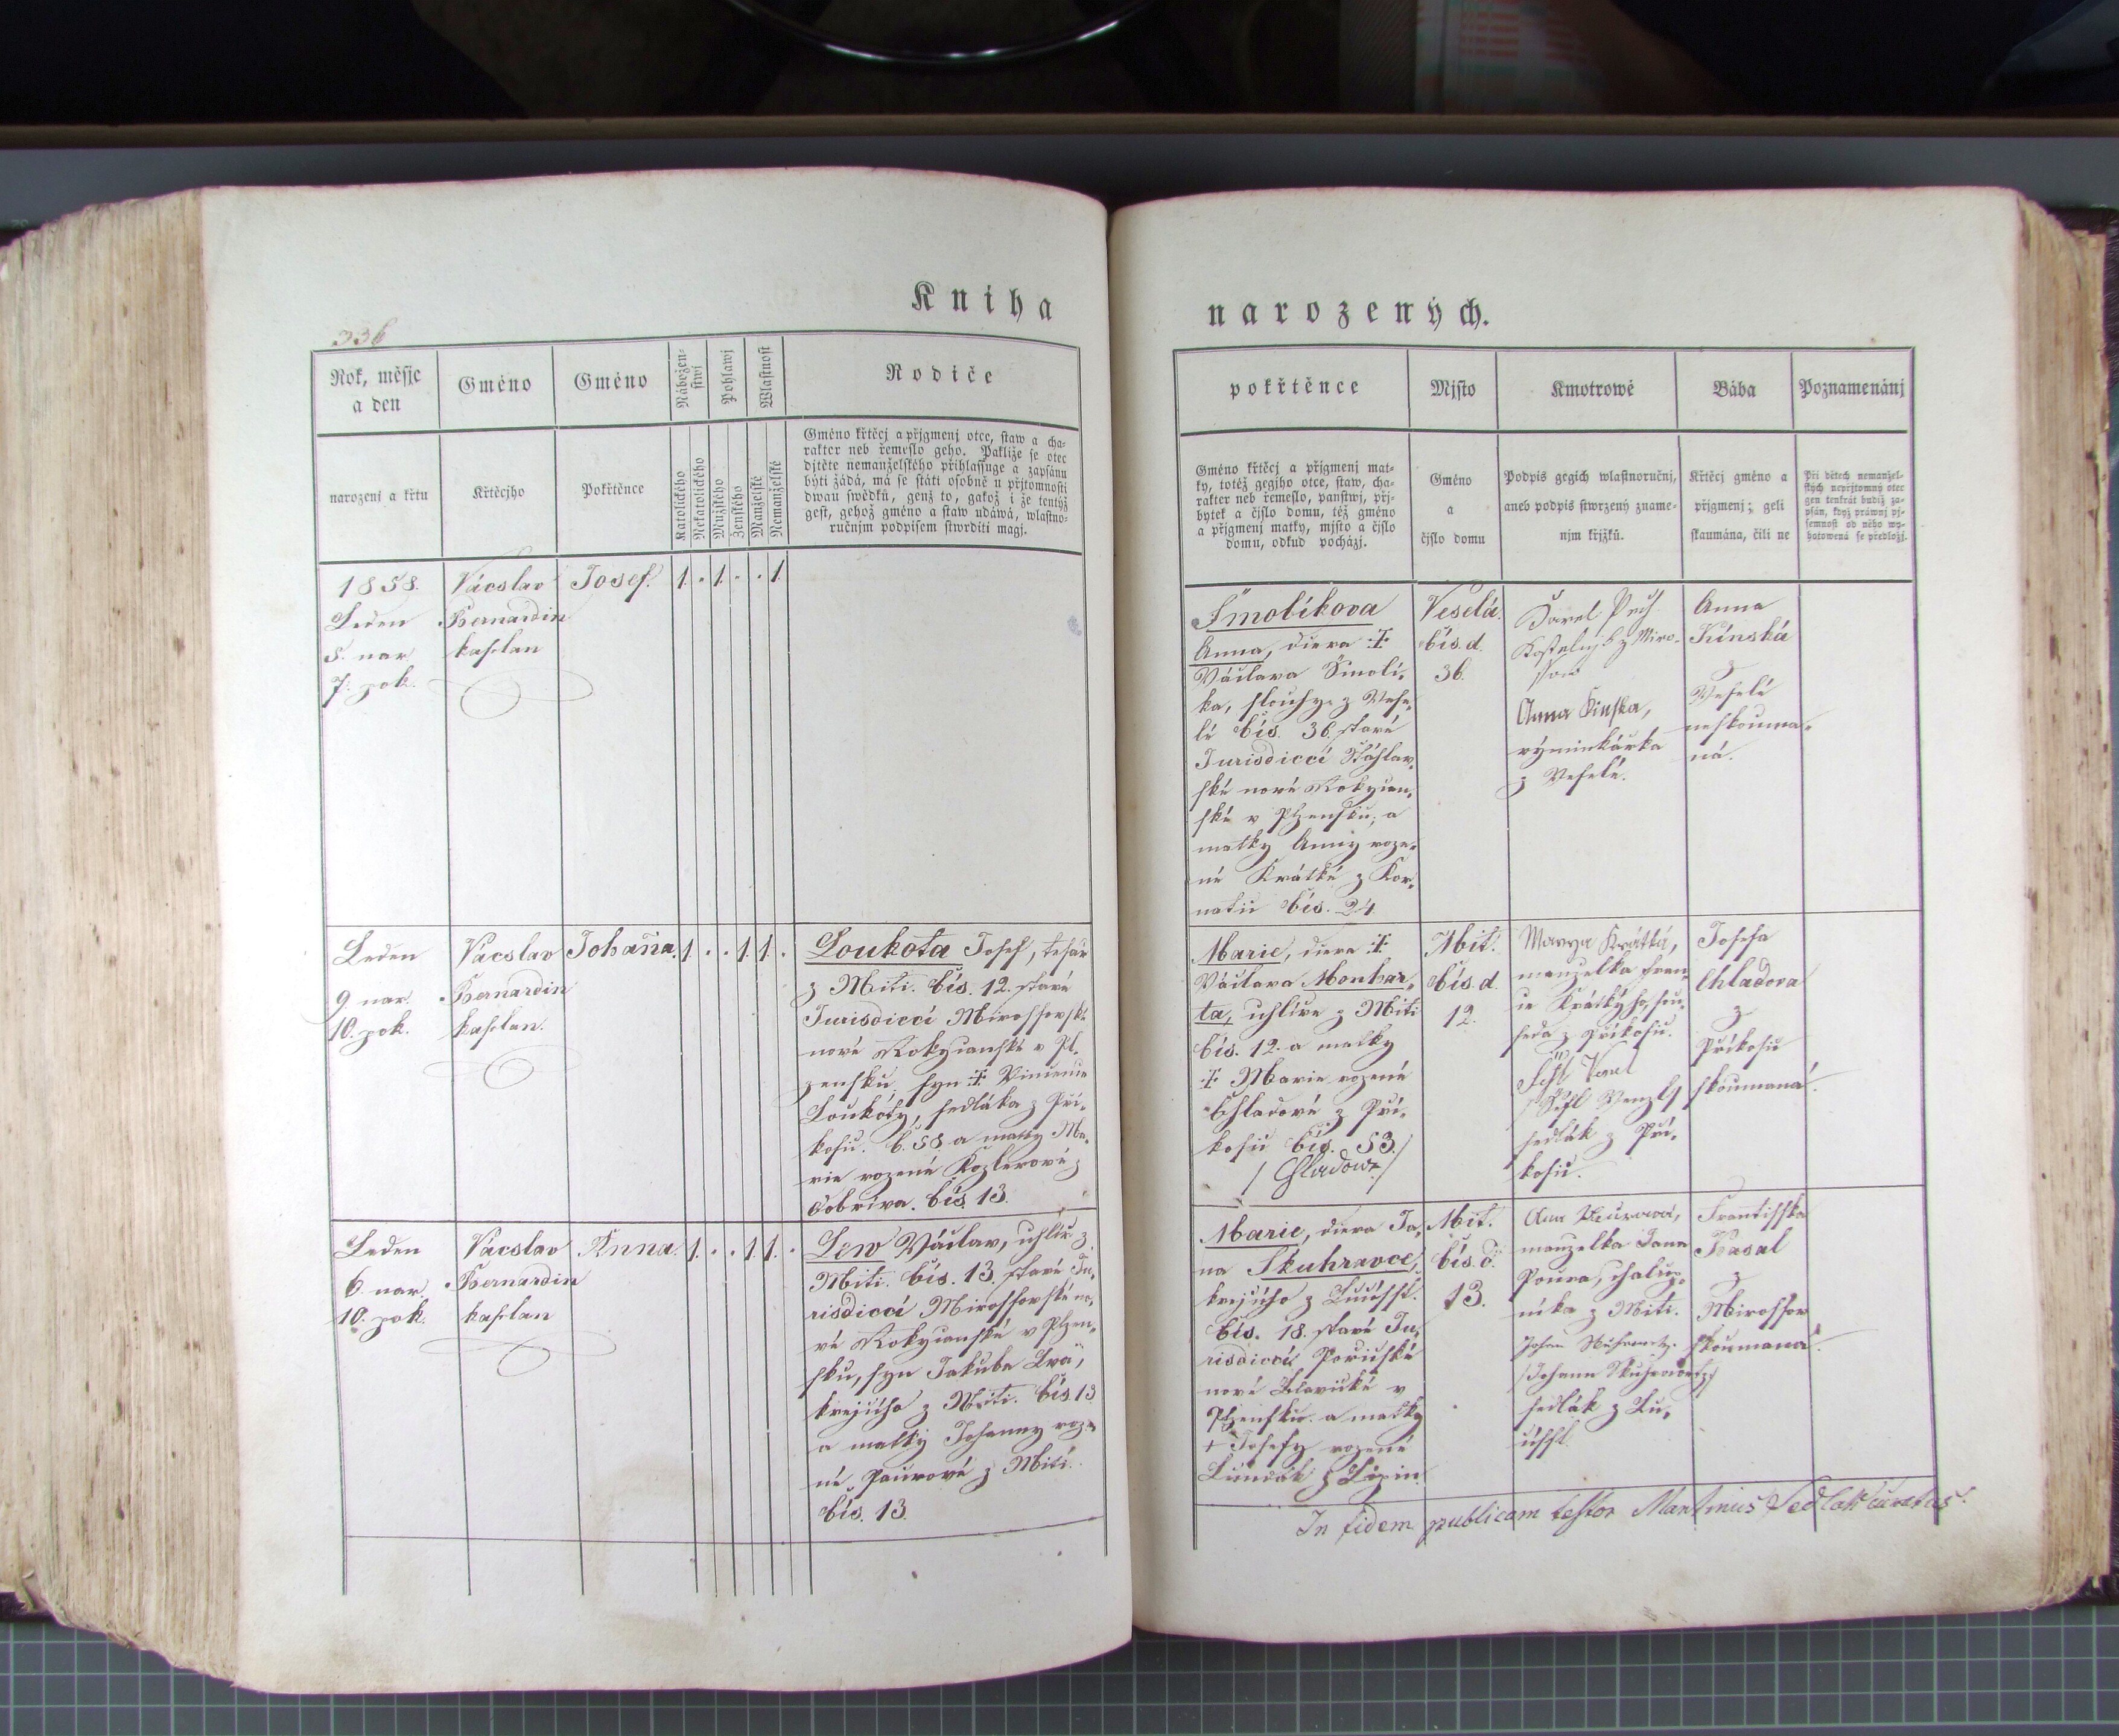 Kniha
narozených.
336
Rok, měsjc
a den
narozenj a křtu
Gméno
Křtěcjho
Gméno
Pokřtěnce
Nábožen-
stwj
Katolického
Nekatolického
Pohlawj
Mužského
Ženského
Wlastnost
Manželské
Nemanželské
Rodiče
Gméno křtěcj a přjgmenj otce, staw a cha-
rakter neb řemeslo geho. Pakliže se otec
djtěte nemanželského přihlassuge a zapsánu
býti žádá, má se státi osobně u přjtomnosti
dwau swědků, genž to, gakož i že tentýž
gest, gehož gméno a staw udáwá, wlastno-
ručnjm podpisem stwrditi magj.
1858.
Leden
5. nar.
7. pok.
Vácslav
Bernardin
kaplan
Josef.
1 . 1 . . 1
Leden
9 nar.
10. pok.
Vácslav
Bernardin
kaplan.
Johana.
1 . . 1 1 .
Loukota Josef, tesař
z Mití. čís. 12. staré
Jurisdicci Mirossovské
nové Rokycanské v Pl-
zensku, syn ✝ Vincence
Loukoty, sedláka z Pří-
kosic. č. 58 a matky Ma-
rie rozené Kozlerové z
Dobříva. čís. 13.
Leden
6. nar.
10. pok.
Vácslav
Bernardin
kaplan
Anna.
1 . . 1 1 .
Lew Václav, uhlíř z
Mití. čís. 13. staré Ju-
risdicci Mirossovské no-
vé Rokycanské v Plzen-
sku, syn Jakuba Lva,
krejčího z Mití. čís. 13
a matky Johanny roze-
né Paurové z Mití.
čís. 13.
pokřtěnce
Gméno křtěcj a přjgmenj mat-
ky, totéž gegjho otce, staw, cha-
rakter neb řemeslo, panstwj, přj-
bytek a čjslo domu, též gméno
a přjgmenj matky, mjsto a čjslo
domu, odkud pocházj.
Mjsto
Gméno
a
čjslo domu
Kmotrowé
Podpis gegich wlastnoručnj,
aneb podpis stwrzený zname-
njm křjžků.
Bába
Křtěcj gméno a
přjgmenj; geli
skaumána, čili ne
Poznamenánj
Při dětech nemanžel-
ských nepřjtomný otec
gen tenkrát budiž za-
psán, když práwnj pj-
semnost od něho wy-
hotowená se předložj.
Šmolíkova
Anna, dcera ✝
Václava Šmolí-
ka, slouhy z Vese-
lé čís. 36. staré
Jurisdicci Štáhlav-
ské nové Rokycan-
ské v Plzensku, a
matky Anny roze-
né Krátké z Kor-
natic čís. 24.
Veselá.
čís. d.
36.
Karel Pech
z Miro-
ssov
Anna Kinska,
výminkářka
z Veselé.
Anna
Kinská
z
Veselé
neskouma-
ná.
Marie, dcera ✝
Václava Monhar-
ta, uhlíře z Mití
čís. 12. a matky
✝ Marie rozené
Chladové z Pří-
kosic čís. 53.
/ Chladowa /
Mit.
čís. d.
12.
Marya Krátká,
manzelka Fran-
ce Krátkyho, sou-
seda z Příkosic.
sedlák z Pří-
kosic.
Josefa
Chladova
z
Příkosic
skoumaná.
Marie, dcera Ja-
na Skuhravce,
krejčího z
čís. 18. staré Ju-
risdicci
nové v
Plzensku. a matky
+ Josefy rozené
z
Mit.
čís. d.
13.
Ana
manzelka Jana
Poura, chalup-
níka z Mití.
Johan
/Johann Skuhrawetz/
sedlák z Lu-
Frantisska
Kasal
z
Mirossov
skoumaná.
In fidem publicam testor Martinus Sedlak curatus.